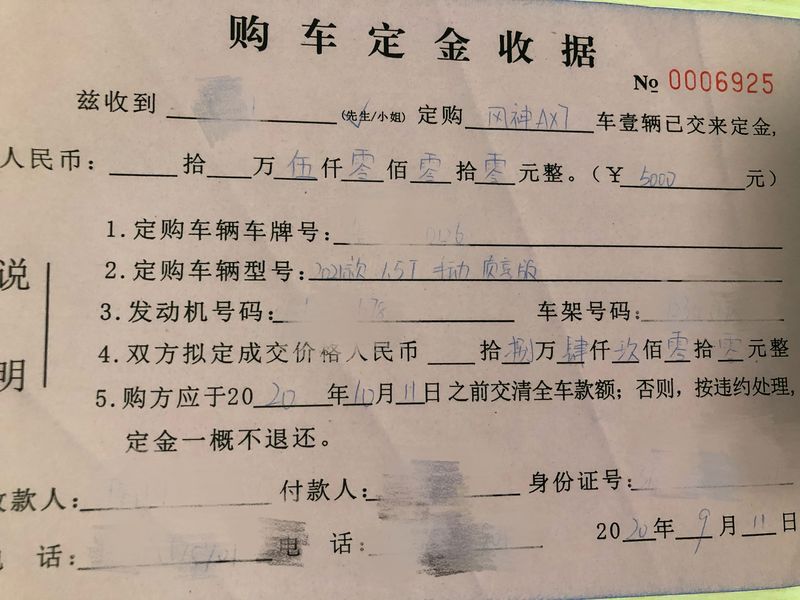 购车定金收据
№ 0006925
兹收到 (先生/小姐) 定购 风神AX7 车壹辆已交来定金,
人民币: 拾 万 伍 仟 零 佰 零 拾 零 元整。(¥ 5000 元)
说明
1.定购车辆车牌号:
2.定购车辆型号: 2021款 1.5T 手动 质享版
3.发动机号码: 车架号码:
4.双方拟定成交价格人民币 拾 捌 万 肆 仟 玖 佰 零 拾 零 元整
5.购方应于20 20 年 10 月 11 日之前交清全车款额;否则,按违约处理,
定金一概不退还。
收款人: 付款人: 身份证号:
电 话: 电 话: 20 20 年 9 月 11 日